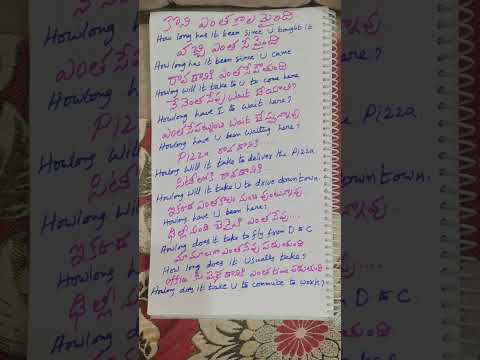 కొని ఎంత కాలమైంది
How long has it been since U bought it
వచ్చి ఎంత సేపైంది
How long has it been since U came
రావడానికి ఎంతసేపౌతుంది
Howlong will it take to U to come here
నేనెంతసేపు wait చేయాలి?
Howlong have I to wait here?
ఎంతసేపట్నుంచి wait చేస్తున్నావు
Howlong have U been waiting here?
Pizza రావడానికి....
Howlong will it take to deliver the Pizza
సిటీలోకి రావడానికి?
Howlong will it take U to drive downtown.
ఇక్కడ ఎంతకాలం నుంచి వుంటున్నావు
Howlong have U been here?
ఢిల్లీ నుంచి చెన్నైకి ఎంతసేపు....
Howlong does it take to fly from D to C
మామూలుగా ఎంతసేపు పడుతుంది
How long does it usually take?
office కి వెళ్లడానికి ఎంత time పడుతుంది
Howlong does it take U to commute to work?